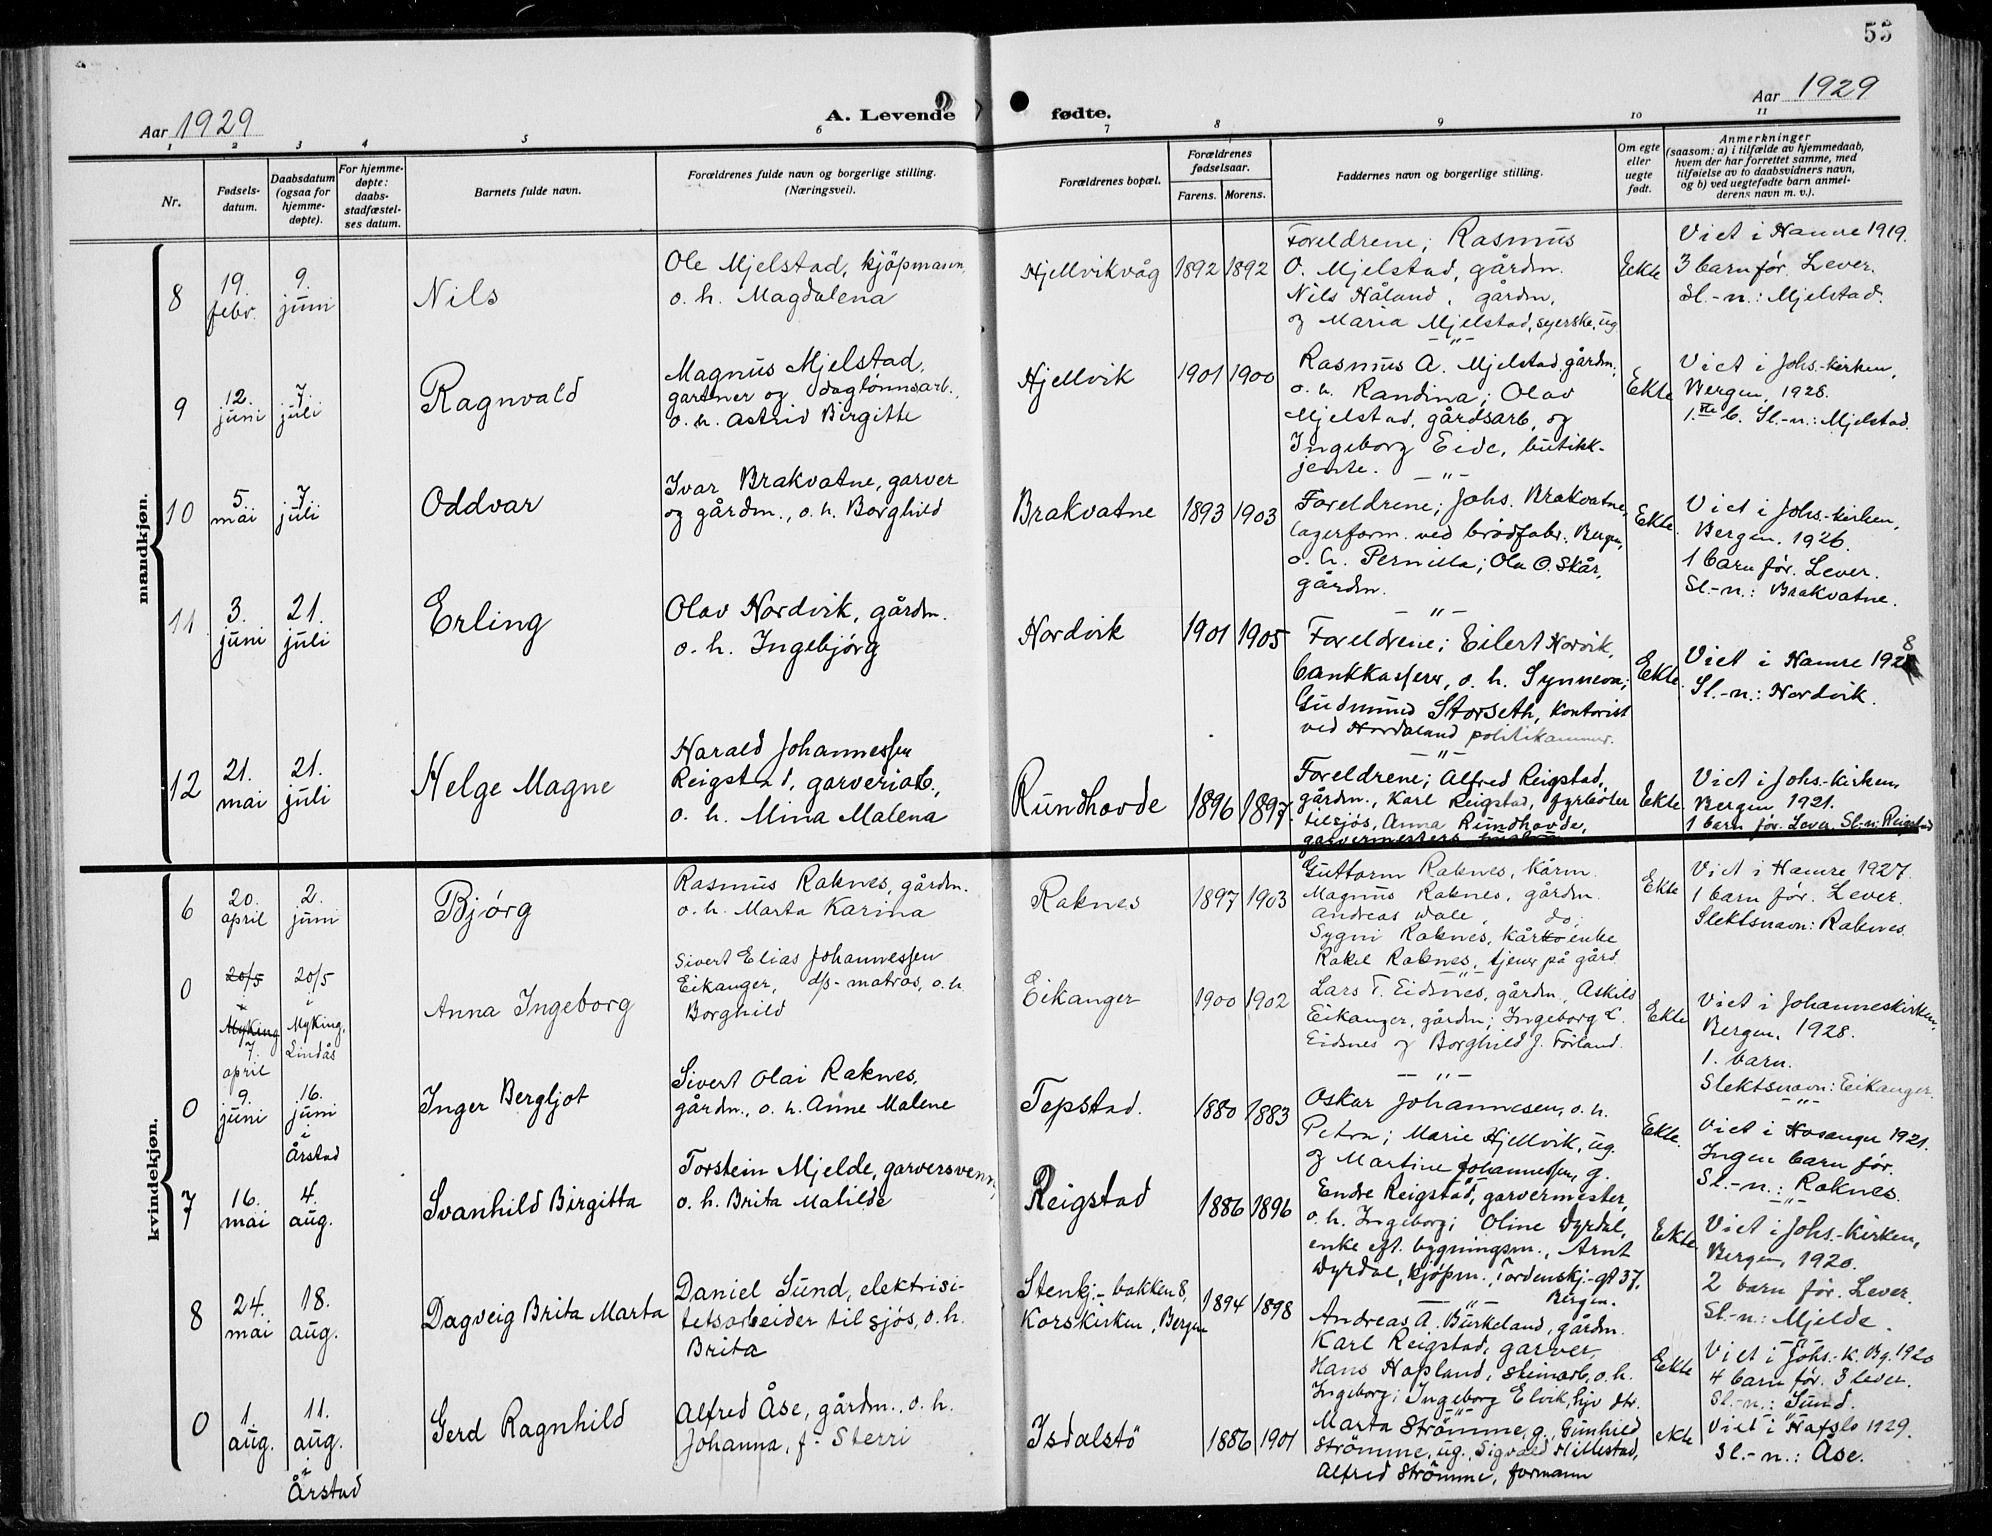 53
Aar 1929
A. Levende fødte.
Aar 1929
1 2 3 4 5 6 7 8 9 10 11
Nr.
Fødsels-
datum.
Daabsdatum
(ogsaa for
hjemme-
døpte).
For hjemme-
døpte:
daabs-
stadfæstel-
ses datum.
Barnets fulde navn.
Forældrenes fulde navn og borgerlige stilling.
(Næringsvei).
Forældrenes bopæl.
Forældrenes
fødselsaar.
Farens. Morens.
Faddernes navn og borgerlige stilling.
Om egte
eller
uegte
født.
Anmerkninger
(saasom: a) i tilfælde av hjemmedaab,
hvem der har forrettet samme, med
tilføielse av to daabsvidners navn,
og b) ved uegtefødte barn anmel-
derens navn m. v.).
mandkjøn.
8
19.
febr.
9.
juni
Nils
Ole Mjelstad, kjöpmann,
o. h. Magdalena
Hjellvikvåg
1892 1892
Foreldrene; Rasmus
O. Mjelstad, gårdm.
Nils Håland, gårdm,
og Maria Mjelstad, syerske, ug
Ekte
Viet i Hamre 1919.
3 barn før. Lever.
Sl.-n.: Mjelstad.
9
12.
juni
7.
juli
Ragnvald
Magnus Mjelstad,
gartner og daglønnsarb.,
o. h. Astrid Birgitte
Hjellvik
1901 1900
Rasmus A. Mjelstad, gårdm,
o. h. Randina; Olav
Mjelstad, gårdsarb, og
Ingeborg Eide, butikk-
jente.
Ekte
Viet i Johs.-kirken,
Bergen, 1928.
1.ste b. Sl.-n.: Mjelstad.
10
5.
mai
7.
juli
Oddvar
Ivar Brakvatne, garver
og gårdm., o. h. Borghild
Brakvatne
1893 1903
Foreldrene; Johs. Brakvatne,
lagerform. ved brödfabr. Bergen,
o. h. Pernilla; Ola O. Skår,
gårdm.
Ekte.
Viet i Johs.-kirken,
Bergen, 1926.
1 barn før. Lever.
Sl.-n.: Brakvatne.
11
3.
juni
21.
juli
Erling
Olav Nordvik, gårdm.
o. h. Ingebjørg
Nordvik
1901 1905
Foreldrene; Eilert Norvik,
bankkasserer, o. h. Synneva;
Gudmund Storseth, kontorist
ved Hordaland politikammer.
Ekte.
Viet i Hamre 1928
Sl.-n.: Nordvik.
12
21.
mai
21.
juli
Helge Magne
Harald Johannessen
Reigstad, garveriarb.,
o. h. Mina Malena
Rundhovde
1896 1897.
Foreldrene; Alfred Reigstad,
gårdm., Karl Reigstad, fyrböter
tilsjös, Anna Rundhovde,
garvermesters
Ekte
Viet i Johs.-kirken,
Bergen, 1921.
1 barn før. Lever. Sl.-n: Reigstad
kvindekjøn.
6
20.
april
2.
juni
Bjørg
Rasmus Raknes, gårdm.
o. h. Marta Karina
Raknes
1897 1903
Guttorm Raknes, kårm.
Magnus Raknes, gårdm.
Andreas Dale, do.
Sygni Raknes, kårenke
Rakel Raknes, tjener på gård.
Ekte
Viet i Hamre 1927.
1 barn før. Lever.
Slektsnavn: Raknes.
0
20/5
i
Myking
7.
april
20/5
i
Myking,
Lindås
Anna Ingeborg
Sivert Elias Johannessen
Eikanger, d/s-matros, o. h.
Borghild
Eikanger
1900 1902
Lars T. Eidsnes, gårdm, Askild
Eikanger, gårdm; Ingeborg L.
Eidsnes og Borghild J. Förland.
Ekte
Viet i Johanneskirken,
Bergen, 1928.
1. barn.
Slektsnavn: Eikanger.
0
9.
juni
16.
juni
i
Årstad
Inger Bergljot
Sivert Olai Raknes,
gårdm., o. h. Anne Malene
Tepstad.
1880 1883
Oskar Johannesen, o. h.
Petra; Marie Hjellvik, ug.
og Martine Johannessen, g.
Ekte.
Viet i Hosanger 1921.
Ingen barn før.
Sl.-n.: Raknes.
7
16.
mai
4.
aug.
Svanhild Birgitta
Torstein Mjelde, garversvenn,
o. h. Brita Matilde
Reigstad
1886 1896
Endre Reigstad, garvermester,
o. h. Ingeborg; Oline Dyrdal,
enke eft. bygningsm., Arnt
Dyrdal, kjöpm., Tordenskj.-gt 37.
Bergen.
Ekte
Viet i Johs.-kirken,
Bergen, 1920.
2 barn før. Lever.
Sl.-n.: Mjelde.
8
24.
mai
18.
aug.
Dagveig Brita Marta
Daniel Sund, elektrisi-
tetsarbeider til sjös, o. h.
Brita
Stenkj.-bakken 8,
Korskirken, Bergen
1894 1898
Andreas A. Burkeland, gårdm.
Karl Reigstad, garver,
Hans Hopland, steinarb, o. h.
Ingeborg; Ingeborg Elvik, hjv dtr.
Ekte
Viet i Johs.-K. Bg. 1920
4 barn før. 3 lever.
Sl.-n.: Sund.
0
1.
aug.
11.
aug.
i
Årstad
Gerd Ragnhild
Alfred Åse, gårdm., o. h.
Johanna, f. Sterri
Isdalstö
1886 1901
Marta Strömme, g., Gunhild
Strömme, ug., Sigvald Hillestad,
Alfred Strömme, formann
ekte
Viet i Hafslo 1929.
Sl.-n.: Åse.